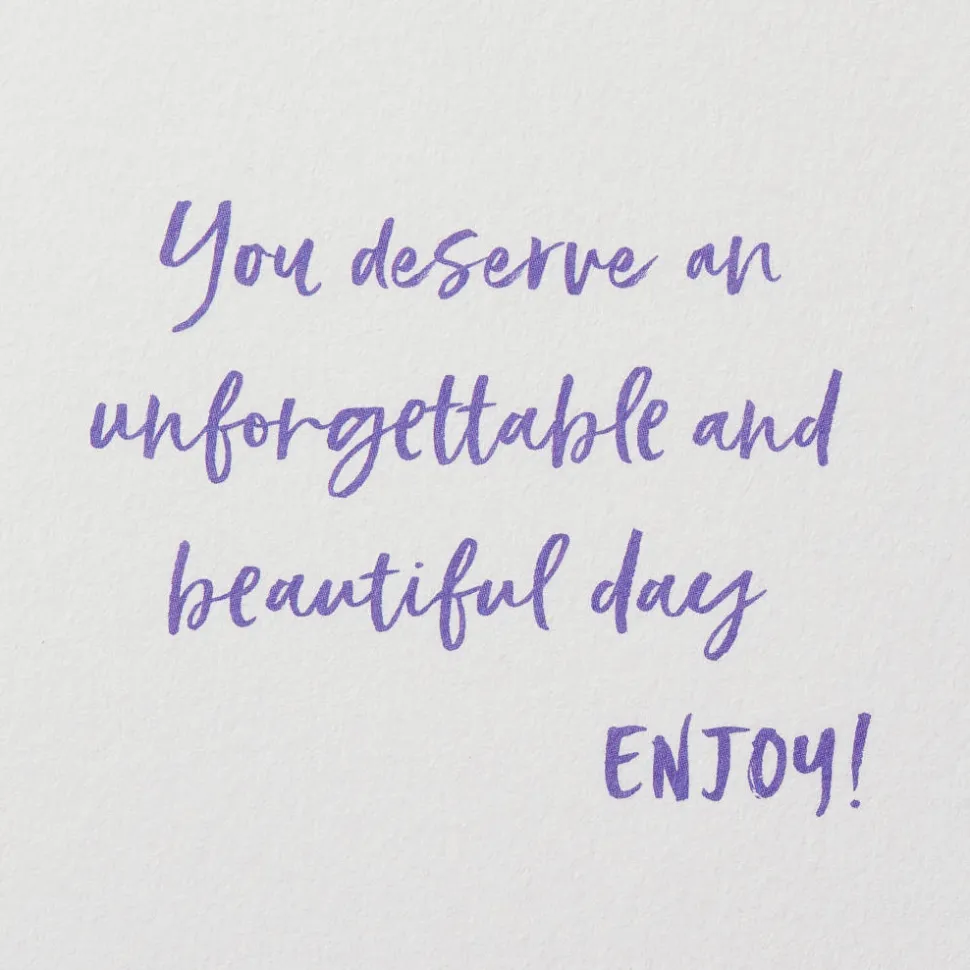 You deserve an
unforgettable and
beautiful day
ENJOY!